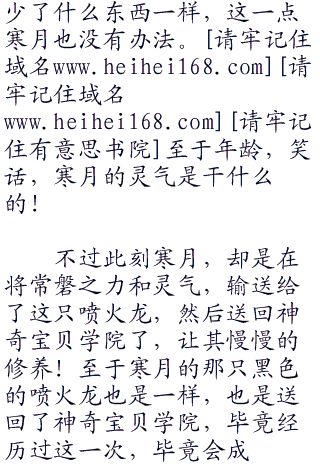 少了什么东西一样，这一点
寒月也没有办法。[请牢记住
域名www.heihei168.com][请
牢记住域名
www.heihei168.com][请牢记
住有意思书院]至于年龄，笑
话，寒月的灵气是干什么
的！
不过此刻寒月，却是在
将常磐之力和灵气，输送给
了这只喷火龙，然后送回神
奇宝贝学院了，让其慢慢的
修养！至于寒月的那只黑色
的喷火龙也是一样，也是送
回了神奇宝贝学院，毕竟经
历过这一次，毕竟会成